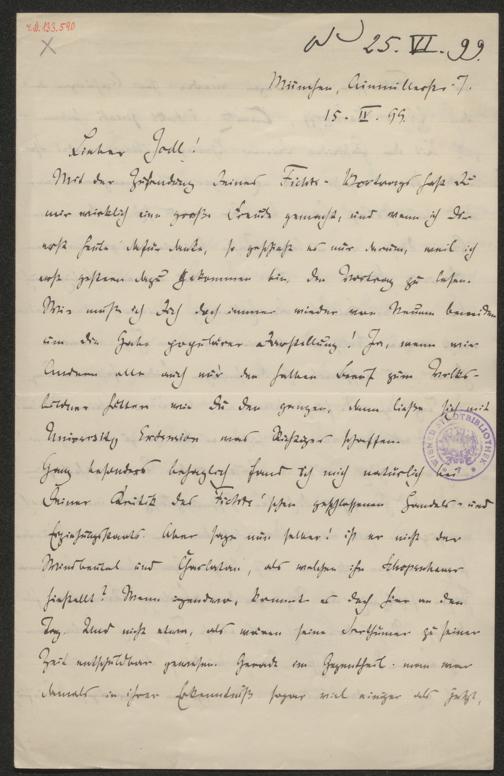 I.N. 133.590
25. VI. 99.
München, Ainmillerstr. 7.
15. IV. 99.
Lieber Jodl!
Mit der Zusendung Deines Fichte-Vortrags hast Du
mir wirklich eine große Freude gemacht, und wenn ich Dir
erst heute dafür danke, so geschieht es nur darum, weil ich
erst gestern dazu gekommen bin, den Vortrag zu lesen.
Wie muß ich Dich doch immer wieder von Neuem beneiden
um die Gabe populärer Darstellung! Ja, wenn wir
Anderen alle auch nur den halben Beruf zum Volks-
bildner hätten wie Du den ganzen, dann ließe sich mit
University Extension was Richtiges schaffen.
Ganz besonders behaglich fand ich mich natürlich bei
Deiner Kritik des Fichte'schen geschlossenen Handels- und
Erziehungsstaats. Aber sage nun selber! ist er nicht der
Windbeutel und Charlatan, als welchen ihn Schopenhauer
hinstellt? Wenn irgendwo, kommt es doch hier an den
Tag. Und nicht etwa, als wären seine Irrthümer zu seiner
Zeit entschuldbar gewesen. Gerade im Gegentheil. man war
damals in ihrer Erkenntniß sogar viel einiger als jetzt,
WIENER STADTBIBLIOTHEK